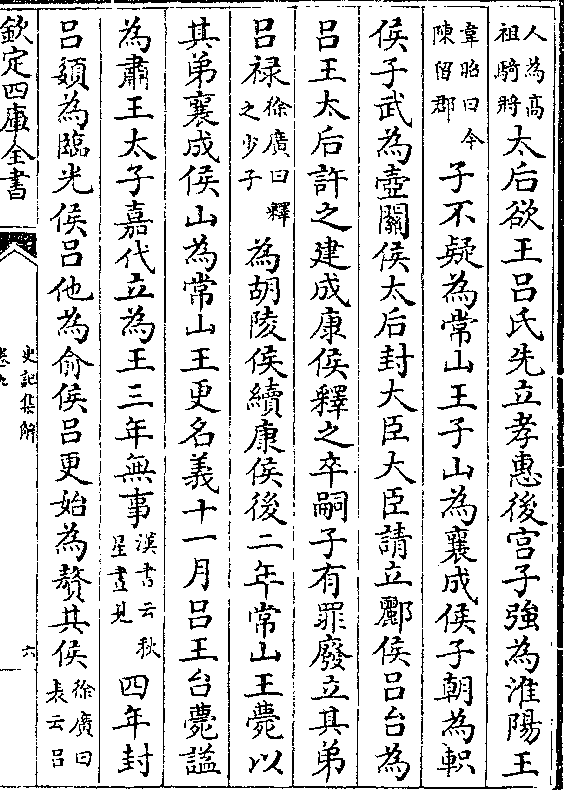 人為高祖騎將太后欲王呂氏先立孝惠後宮子強為淮陽王
韋昭曰今陳留郡子不疑為常山王子山為襄成侯子朝為軹
侯子武為壺關侯太后封大臣大臣請立酈侯呂台為
呂王太后許之建成康侯釋之卒嗣子有罪廢立其弟
呂禄徐廣曰釋之少子為胡陵侯續康侯後二年常山王薨以
其弟襄成侯山為常山王更名義十一月呂王台薨謚
為肅王太子嘉代立為王三年無事漢書云秋星晝見四年封
呂頞為臨光侯呂他為俞侯呂更始為贅其侯徐廣曰表云呂
欽定四庫全書
史記集解
卷九
六